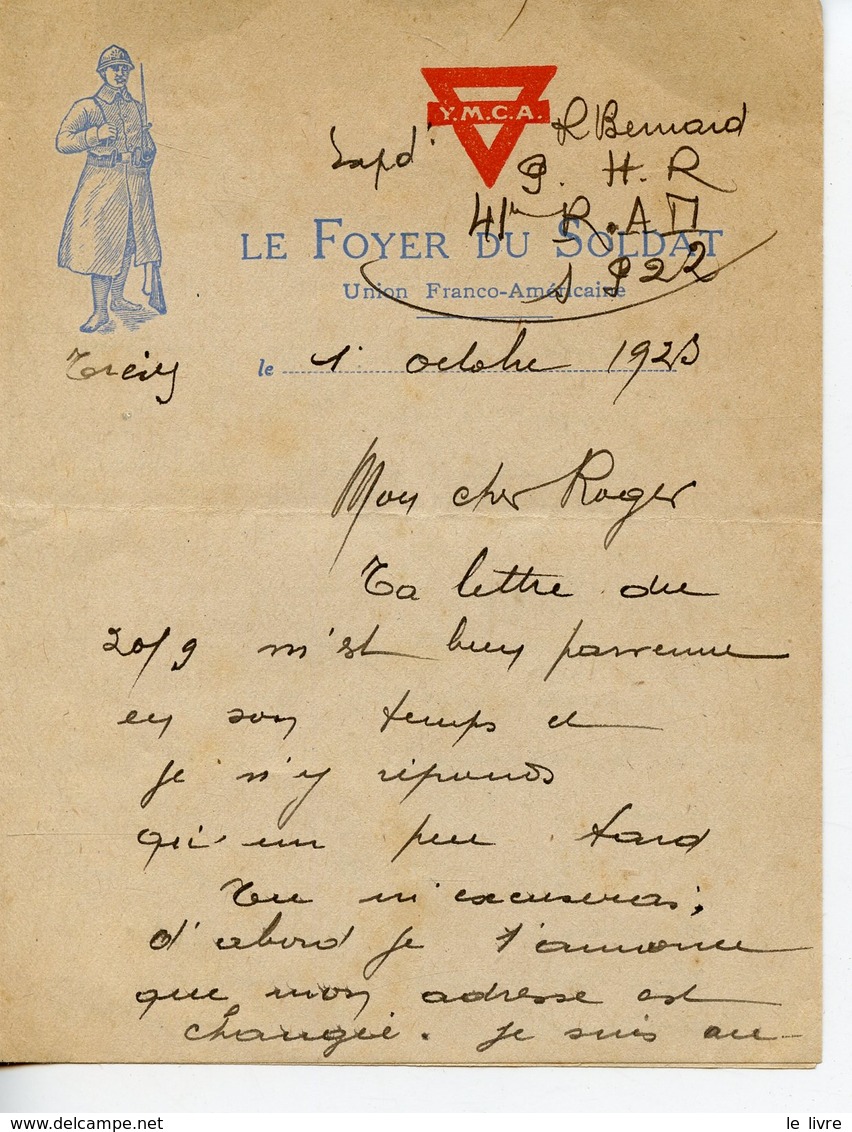 Y.M.C.A.
R Bernard
P. H. R
41e R.A.D
S P 222
LE FOYER DU SOLDAT
Union Franco-Américaine
le 1 octobre 1923
Mon cher Roger
Ta lettre du
20/9 m'est bien parvenue
en son temps et
je n'y réponds
qu'un peu tard
Tu m'excuseras;
d'abord je t'annonce
que mon adresse est
changée. je suis au
le livre